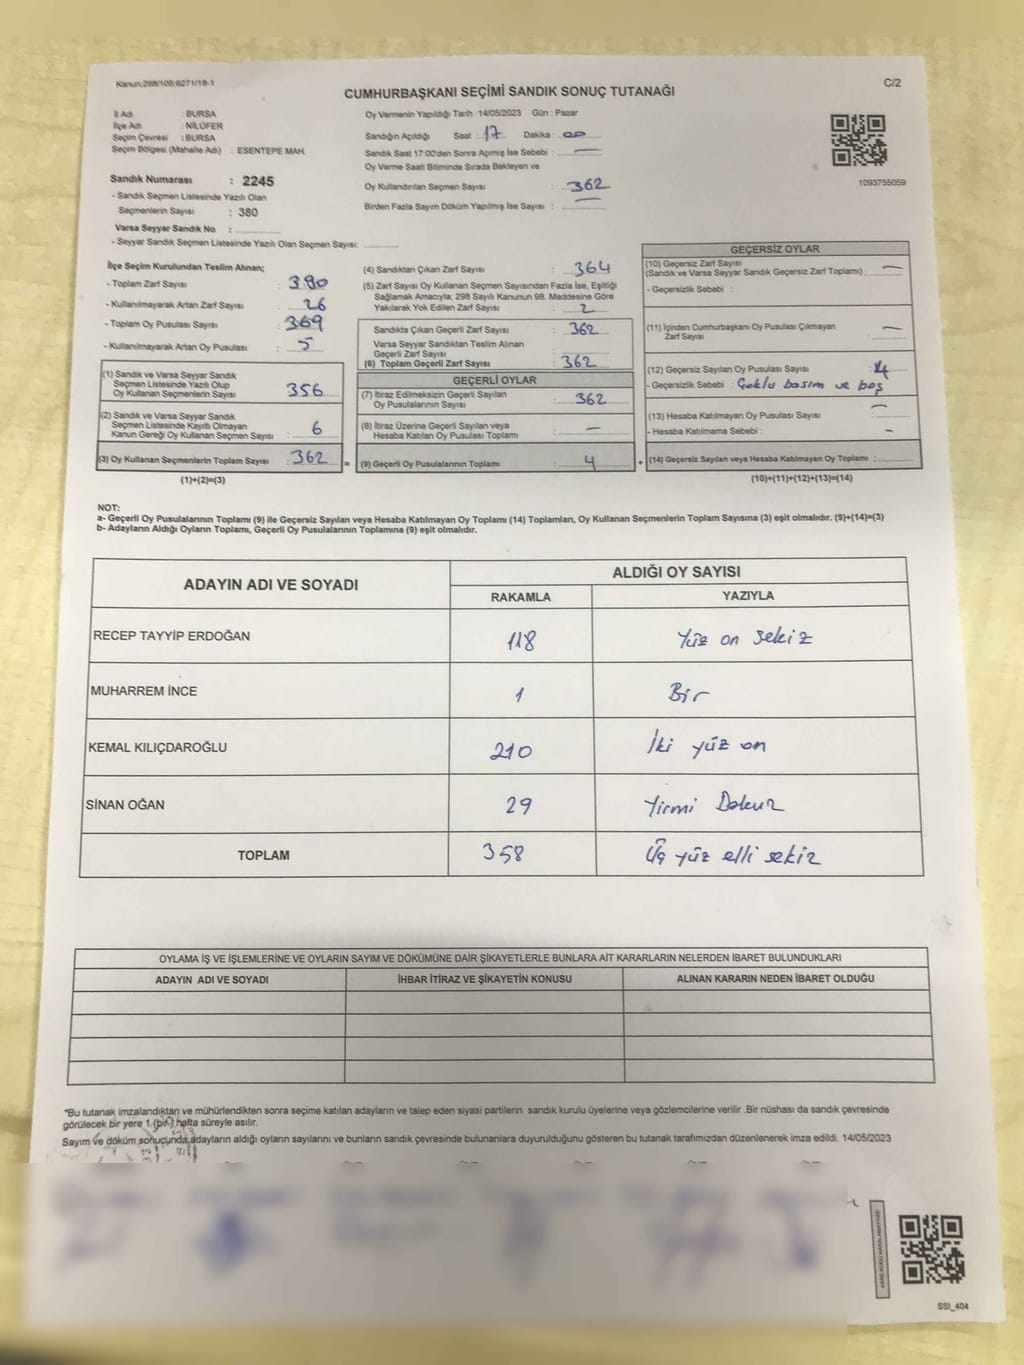 Kanun:298/105;6271/18-1
C/2
CUMHURBAŞKANI SEÇİMİ SANDIK SONUÇ TUTANAĞI
İl Adı : BURSA
İlçe Adı : NİLÜFER
Seçim Çevresi : BURSA
Seçim Bölgesi (Mahalle Adı) : ESENTEPE MAH.
Sandık Numarası : 2245
- Sandık Seçmen Listesinde Yazılı Olan
Seçmenlerin Sayısı : 380
Varsa Seyyar Sandık No :
- Seyyar Sandık Seçmen Listesinde Yazılı Olan Seçmen Sayısı:
Oy Vermenin Yapıldığı Tarih : 14/05/2023 Gün : Pazar
Sandığın Açıldığı Saat : 17 Dakika : 00
Sandık Saat 17:00'den Sonra Açılmış İse Sebebi : —
Oy Verme Saati Bitiminde Sırada Bekleyen ve
Oy Kullandırılan Seçmen Sayısı : 362
Birden Fazla Sayım Döküm Yapılmış İse Sayısı : —
1093755059
İlçe Seçim Kurulundan Teslim Alınan;
- Toplam Zarf Sayısı : 390
- Kullanılmayarak Artan Zarf Sayısı : 26
- Toplam Oy Pusulası Sayısı : 369
- Kullanılmayarak Artan Oy Pusulası : 5
(1) Sandık ve Varsa Seyyar Sandık
Seçmen Listesinde Yazılı Olup
Oy Kullanan Seçmenlerin Sayısı : 356
(2) Sandık ve Varsa Seyyar Sandık
Seçmen Listesinde Kayıtlı Olmayan
Kanun Gereği Oy Kullanan Seçmen Sayısı : 6
(3) Oy Kullanan Seçmenlerin Toplam Sayısı : 362
(1)+(2)=(3)
(4) Sandıktan Çıkan Zarf Sayısı : 364
(5) Zarf Sayısı Oy Kullanan Seçmen Sayısından Fazla İse, Eşitliği
Sağlamak Amacıyla; 298 Sayılı Kanunun 98. Maddesine Göre
Yakılarak Yok Edilen Zarf Sayısı : 2
Sandıkta Çıkan Geçerli Zarf Sayısı : 362
Varsa Seyyar Sandıktan Teslim Alınan
Geçerli Zarf Sayısı :
(6) Toplam Geçerli Zarf Sayısı : 362
GEÇERLİ OYLAR
(7) İtiraz Edilmeksizin Geçerli Sayılan
Oy Pusulalarının Sayısı : 362
(8) İtiraz Üzerine Geçerli Sayılan veya
Hesaba Katılan Oy Pusulası Toplamı : —
= (9) Geçerli Oy Pusulalarının Toplamı : 4
GEÇERSİZ OYLAR
(10) Geçersiz Zarf Sayısı
(Sandık ve Varsa Seyyar Sandık Geçersiz Zarf Toplamı) : —
- Geçersizlik Sebebi :
(11) İçinden Cumhurbaşkanı Oy Pusulası Çıkmayan
Zarf Sayısı : —
(12) Geçersiz Sayılan Oy Pusulası Sayısı : 4
- Geçersizlik Sebebi : Çoklu basım ve boş
(13) Hesaba Katılmayan Oy Pusulası Sayısı : —
- Hesaba Katılmama Sebebi : —
+ (14) Geçersiz Sayılan veya Hesaba Katılmayan Oy Toplamı :
(10)+(11)+(12)+(13)=(14)
NOT:
a- Geçerli Oy Pusulalarının Toplamı (9) ile Geçersiz Sayılan veya Hesaba Katılmayan Oy Toplamı (14) Toplamları, Oy Kullanan Seçmenlerin Toplam Sayısına (3) eşit olmalıdır. (9)+(14)=(3)
b- Adayların Aldığı Oyların Toplamı, Geçerli Oy Pusulalarının Toplamına (9) eşit olmalıdır.
ADAYIN ADI VE SOYADI
ALDIĞI OY SAYISI
RAKAMLA YAZIYLA
RECEP TAYYİP ERDOĞAN 118 Yüz on sekiz
MUHARREM İNCE 1 Bir
KEMAL KILIÇDAROĞLU 210 İki yüz on
SİNAN OĞAN 29 Yirmi Dokuz
TOPLAM 358 Üç yüz elli sekiz
OYLAMA İŞ VE İŞLEMLERİNE VE OYLARIN SAYIM VE DÖKÜMÜNE DAİR ŞİKAYETLERLE BUNLARA AİT KARARLARIN NELERDEN İBARET BULUNDUKLARI
ADAYIN ADI VE SOYADI İHBAR İTİRAZ VE ŞİKAYETİN KONUSU ALINAN KARARIN NEDEN İBARET OLDUĞU
*Bu tutanak imzalandıktan ve mühürlendikten sonra seçime katılan adayların ve talep eden siyasi partilerin sandık kurulu üyelerine veya gözlemcilerine verilir .Bir nüshası da sandık çevresinde
görülecek bir yere 1 (bir) hafta süreyle asılır.
Sayım ve döküm sonucunda,adayların aldığı oyların sayılarını ve bunların sandık çevresinde bulunanlara duyurulduğunu gösteren bu tutanak tarafımızdan düzenlenerek imza edildi. 14/05/2023
SSI_404